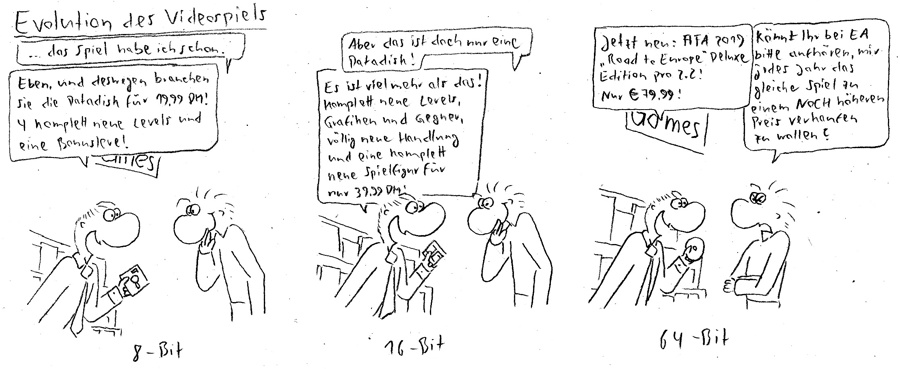 Evolution des Videospiels
... das Spiel habe ich schon.
Eben, und deswegen brauchen
sie die Datadisk für 19,99 DM!
4 komplett neue Levels und
eine Bonuslevel!
Games
8-Bit
Aber das ist doch nur eine
Datadisk!
Es ist viel mehr als das!
Komplett neue Levels,
Grafiken und Gegner,
völlig neue Handlung
und eine komplett
neue Spielfigur für
nur 39,99 DM!
16-Bit
Jetzt neu: FIFA 2019
„Road to Europe" Deluxe
Edition pro 2.2!
Nur € 79,99!
Games
Könnt Ihr bei EA
bitte aufhören, mir
jedes Jahr das
gleiche Spiel zu
einem NOCH höheren
Preis verkaufen
zu wollen?
64-Bit